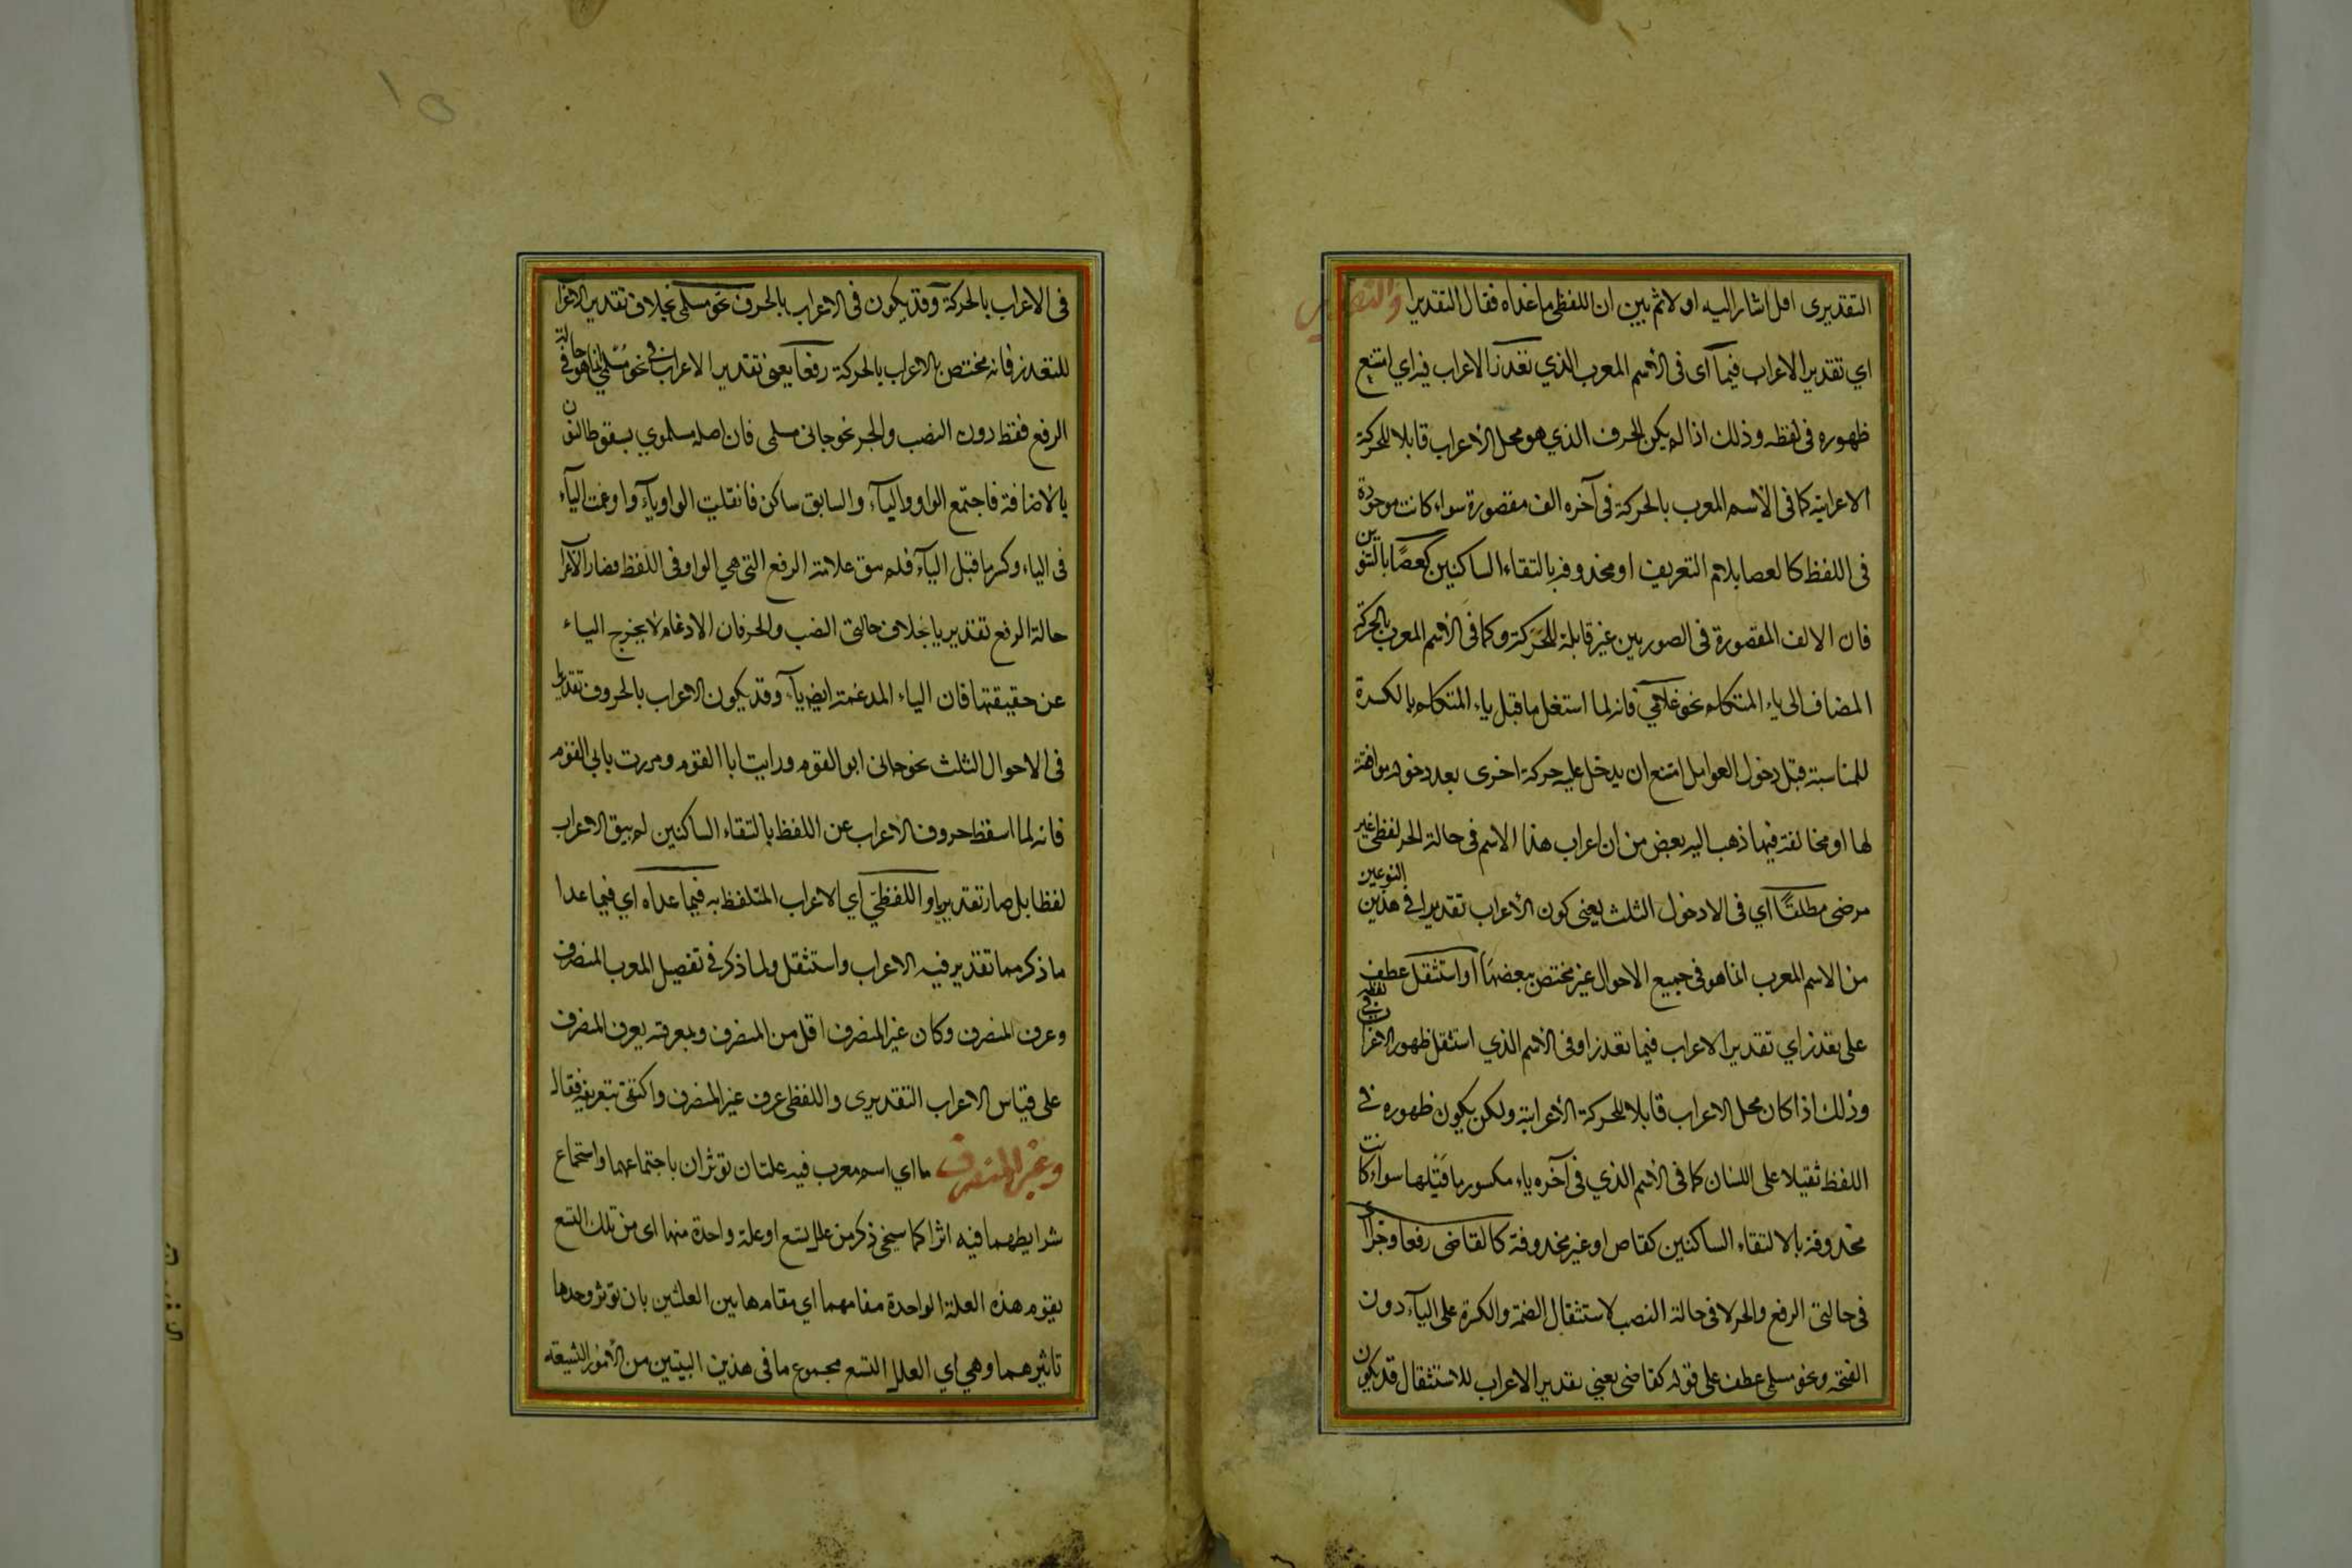 التقديرى اقل اشار اليه اولا ثم بين ان اللفظى ما عداه فقال التقدير
اي تقدير الاعراب فيما اى فى الاسم المعرب الذي تعذر الاعراب فيه اي امتنع
ظهوره فى لفظه وذلك اذا لم يكن الحرف الذي هو محل الاعراب قابلا للحركة
الاعرابية كما فى الاسم المعرب بالحركة فى آخره الف مقصورة سواء كانت موجودة
فى اللفظ كالعصا بلام التعريف او محذوفة بالتقاء الساكنين كعصًا بالتنوين
فان الالف المقصورة فى الصورتين غير قابلة للحركة وكما فى الاسم المعرب بالحركة
المضاف الى ياء المتكلم نحو غلامي فانه لما اشتغل ما قبل ياء المتكلم بالكسرة
للمناسبة قبل دخول العوامل امتنع ان يدخل عليه حركة اخرى بعد دخوله موافقة
لها او مخالفة فيما ذهب اليه بعض من ان اعراب هذا الاسم فى حالة الجر لفظى غير
مرضى مطلقًا اي فى الاحوال الثلث يعنى كون الاعراب تقديرا فى هذين النوعين
من الاسم المعرب انما هو فى جميع الاحوال غير مختص ببعضها او استثقل عطف
على تعذر اي تقدير الاعراب فيما تعذر او فى الاسم الذي استثقل ظهور الاعراب فى لفظه
وذلك اذا كان محل الاعراب قابلا للحركة الاعرابية ولكن يكون ظهوره فى
اللفظ ثقيلا على اللسان كما فى الاسم الذي فى آخره ياء مكسور ما قبلها سواء كانت
محذوفة بالالتقاء الساكنين كقاض او غير محذوفة كالقاضى رفعا وجرا اى
فى حالتى الرفع والجر لا فى حالة النصب لاستثقال الضمة والكسرة على الياء دون
الفتحة ونحو مسلمى عطف على قوله كقاضى يعني تقدير الاعراب للاستثقال قد يكون
فى الاعراب بالحركة وقد يكون فى الاعراب بالحرف نحو مسلمى بخلاف تقدير الاعرا
للتعذر فانه مختص بالاعراب بالحركة رفعا يعنى تقدير الاعراب فى نحو مسلمي انما هو فى حالة
الرفع فقط دون النصب والجر نحو جانى مسلمى فان اصله مسلموي بسقوط النون
بالاضافة فاجتمع الواو والياء والسابق ساكن فانقلبت الواو ياء وادغمت الياء
فى الياء وكسر ما قبل الياء فلم يبق علامة الرفع التى هي الواو فى اللفظ فصار الاعرا
حالة الرفع تقديريا بخلاف حالتى النصب والجر فان الادغام لا يخرج الياء
عن حقيقتها فان الياء المدغمة ايض ياء وقد يكون الاعراب بالحروف تقديريا
فى الاحوال الثلث نحو جانى ابو القوم ورايت ابا القوم ومررت بابي القوم
فانه لما اسقط حروف الاعراب عن اللفظ بالتقاء الساكنين لم يبق الاعراب
لفظا بل صار تقديريا واللفظي اي الاعراب المتلفظ به فيما عداه اي فيما عدا
ما ذكر مما تقدير فيه الاعراب واستثقل ولما ذكر فى تفصيل المعرب المنصرف
وعرف المنصرف وكان غير المنصرف اقل من المنصرف وبمعرفته يعرف المنصرف
على قياس الاعراب التقديرى واللفظى عرف غير المنصرف واكتفى بتعريفه فقال
وغير المنصرف ما اي اسم معرب فيه علتان توثران باجتماعهما واستجماع
شرايطهما فيه اثرا كما سيجئ ذكر من علل تسع او علة واحدة منها اى من تلك التسع
يقوم هذه العلة الواحدة مقامهما اي مقام هاتين العلتين بان توثر وحدها
تاثيرهما وهي اي العلل التسع مجموع ما فى هذين البيتين من الامور التسعة